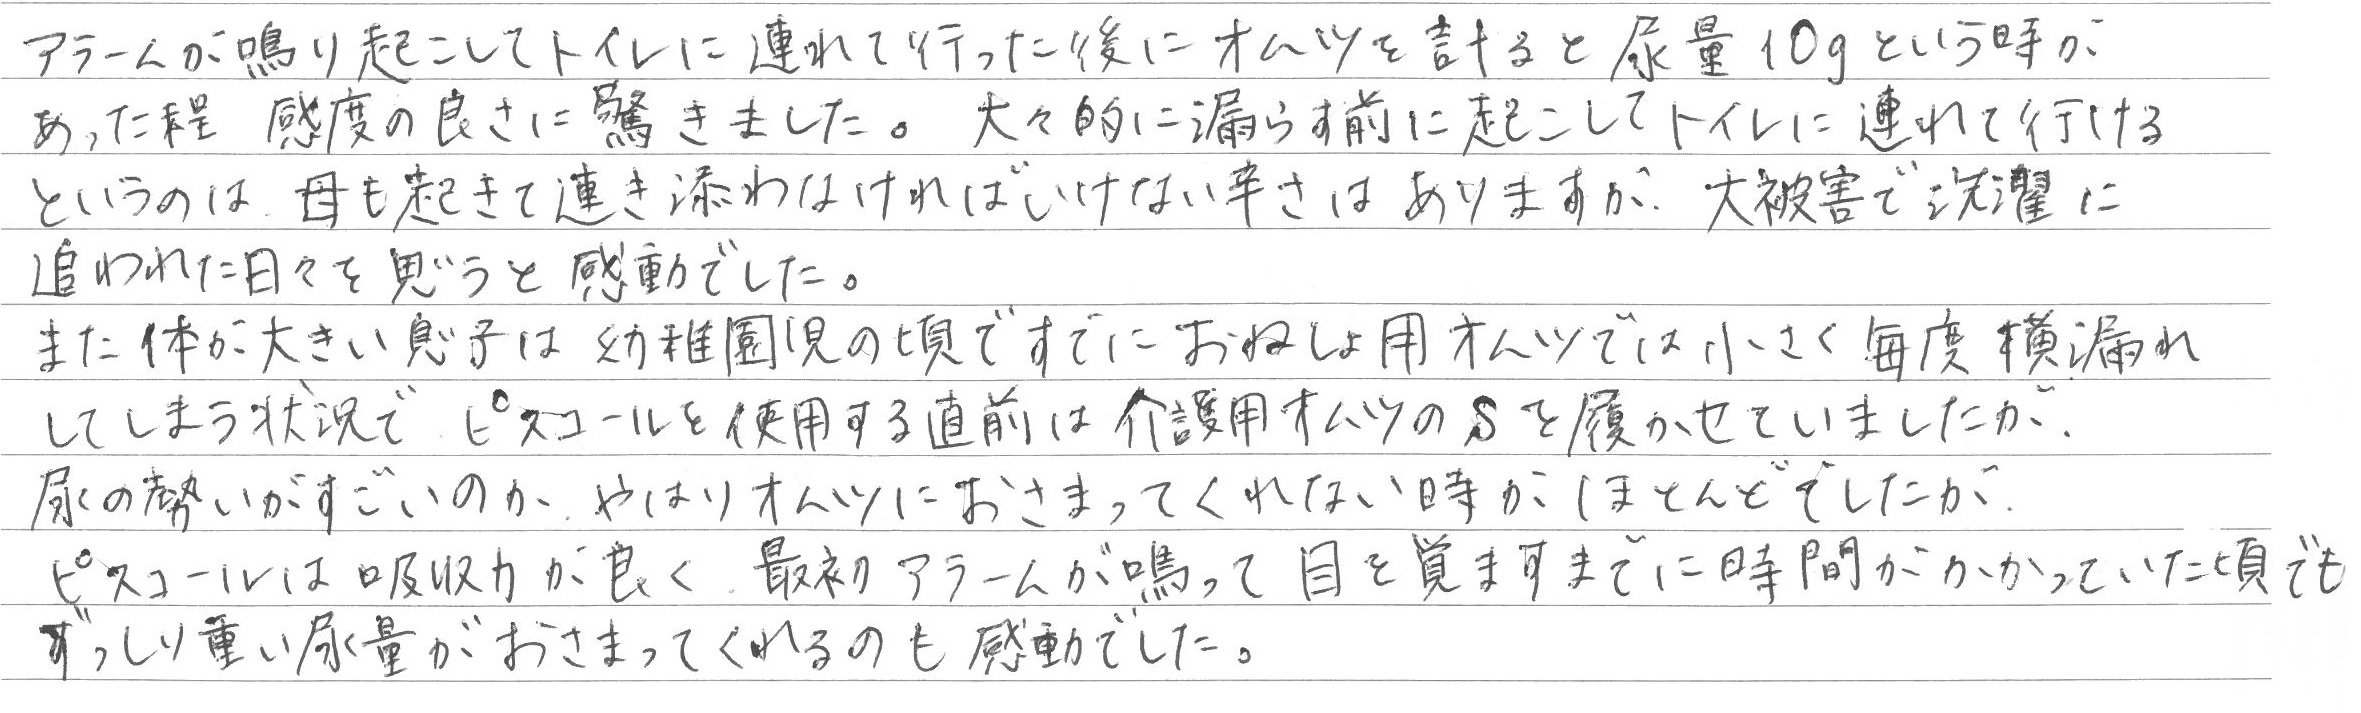 アラームが鳴り起こしてトイレに連れて行った後にオムツを計ると尿量10gという時が
あった程 感度の良さに驚きました。 大々的に漏らす前に起こしてトイレに連れて行ける
というのは、母も起きて連き添わなければいけない辛さはありますが、大被害で洗濯に
追われた日々を思うと感動でした。
また体が大きい息子は幼稚園児の頃ですでにおねしょ用オムツでは小さく毎度横漏れ
してしまう状況で、ピスコールを使用する直前は介護用オムツのSを履かせていましたが、
尿の勢いがすごいのか、やはりオムツにおさまってくれない時がほとんどでしたが、
ピスコールは吸収力が良く、最初アラームが鳴って目を覚ますまでに時間がかかっていた頃でも
ずっしり重い尿量がおさまってくれるのも感動でした。